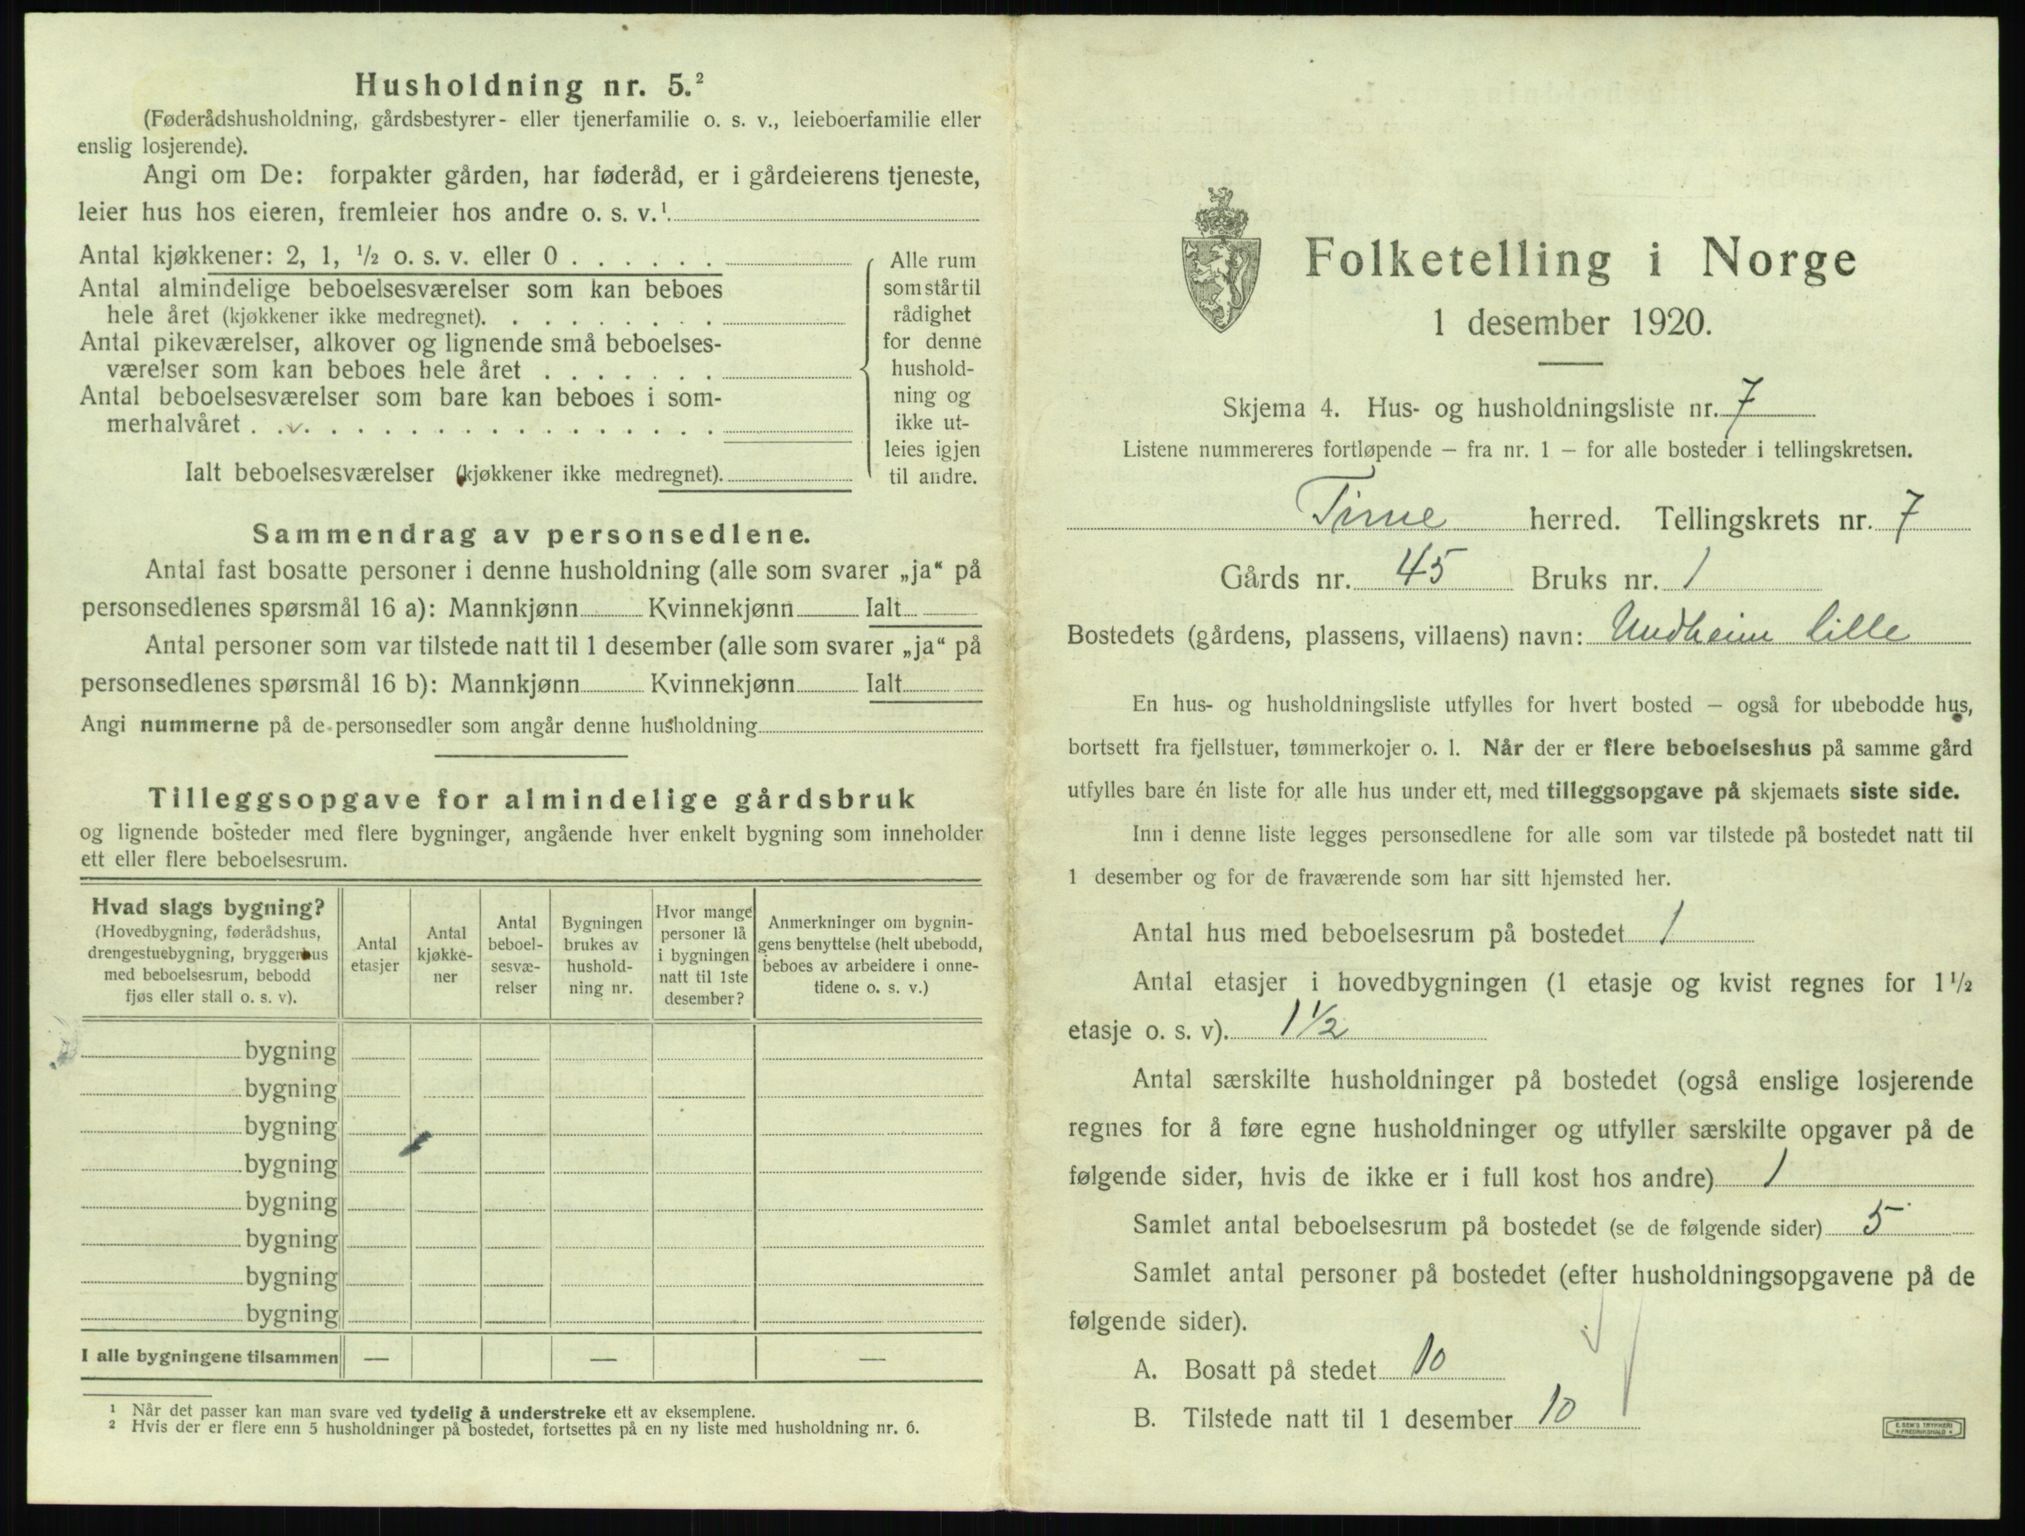 Husholdning nr. 5.²
(Føderådshusholdning, gårdsbestyrer- eller tjenerfamilie o. s. v., leieboerfamilie eller
enslig losjerende).
Angi om De: forpakter gården, har føderåd, er i gårdeierens tjeneste,
leier hus hos eieren, fremleier hos andre o. s. v.¹
Antal kjøkkener: 2, 1, ½ o. s. v. eller 0
Antal almindelige beboelsesværelser som kan beboes
hele året (kjøkkener ikke medregnet)
Antal pikeværelser, alkover og lignende små beboelses-
værelser som kan beboes hele året
Antal beboelsesværelser som bare kan beboes i som-
merhalvåret
Ialt beboelsesværelser (kjøkkener ikke medregnet)
Alle rum
som står til
rådighet
for denne
hushold-
ning og
ikke ut-
leies igjen
til andre.
Sammendrag av personsedlene.
Antal fast bosatte personer i denne husholdning (alle som svarer „ja“ på
personsedlenes spørsmål 16 a): Mannkjønn Kvinnekjønn Ialt
Antal personer som var tilstede natt til 1 desember (alle som svarer „ja“ på
personsedlenes spørsmål 16 b): Mannkjønn Kvinnekjønn Ialt
Angi nummerne på de personsedler som angår denne husholdning
Tilleggsopgave for almindelige gårdsbruk
og lignende bosteder med flere bygninger, angående hver enkelt bygning som inneholder
ett eller flere beboelsesrum.
Hvad slags bygning?
(Hovedbygning, føderådshus,
drengestuebygning, bryggerhus
med beboelsesrum, bebodd
fjøs eller stall o. s. v).
Antal
etasjer
Antal
kjøkke-
ner
Antal
beboel-
sesvæ-
relser
Bygningen
brukes av
hushold-
ning nr.
Hvor mange
personer lå
i bygningen
natt til 1ste
desember?
Anmerkninger om bygnin-
gens benyttelse (helt ubebodd,
beboes av arbeidere i onne-
tidene o. s. v.)
bygning
bygning
bygning
bygning
bygning
bygning
bygning
bygning
I alle bygningene tilsammen — — —
¹ Når det passer kan man svare ved tydelig å understreke ett av eksemplene.
² Hvis der er flere enn 5 husholdninger på bostedet, fortsettes på en ny liste med husholdning nr. 6.
Folketelling i Norge
1 desember 1920.
Skjema 4. Hus- og husholdningsliste nr. 7
Listene nummereres fortløpende – fra nr. 1 – for alle bosteder i tellingskretsen.
Time herred. Tellingskrets nr. 7
Gårds nr. 45 Bruks nr. 1
Bostedets (gårdens, plassens, villaens) navn: Undheim Lille
En hus- og husholdningsliste utfylles for hvert bosted – også for ubebodde hus,
bortsett fra fjellstuer, tømmerkojer o. l. Når der er flere beboelseshus på samme gård
utfylles bare én liste for alle hus under ett, med tilleggsopgave på skjemaets siste side.
Inn i denne liste legges personsedlene for alle som var tilstede på bostedet natt til
1 desember og for de fraværende som har sitt hjemsted her.
Antal hus med beboelsesrum på bostedet 1
Antal etasjer i hovedbygningen (1 etasje og kvist regnes for 1½
etasje o. s. v). 1½
Antal særskilte husholdninger på bostedet (også enslige losjerende
regnes for å føre egne husholdninger og utfyller særskilte opgaver på de
følgende sider, hvis de ikke er i full kost hos andre) 1
Samlet antal beboelsesrum på bostedet (se de følgende sider) 5
Samlet antal personer på bostedet (efter husholdningsopgavene på de
følgende sider).
A. Bosatt på stedet 10
B. Tilstede natt til 1 desember 10
E. SEM'S TRYKKERI
FREDRIKSHALD